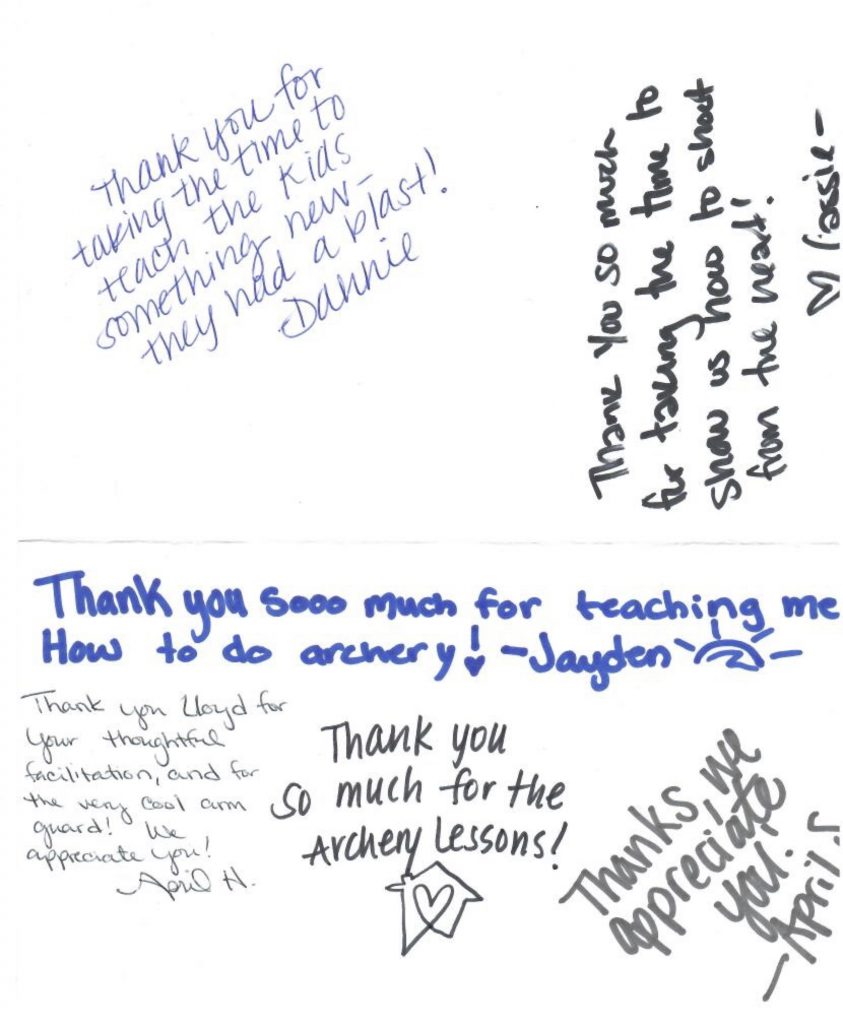 Thank you for
taking the time to
teach the kids
something new—
they had a blast!
Dannie
Thank you so much
for taking the time to
show us how to shoot
from the heart!
♡ Cassie-
Thank you sooo much for teaching me
How to do archery! -Jayden
Thank you Lloyd for
your thoughtful
facilitation, and for
the very cool arm
guard! We
appreciate you!
April H.
Thank you
so much for the
Archery Lessons!
Thanks, we
appreciate
you.
-April